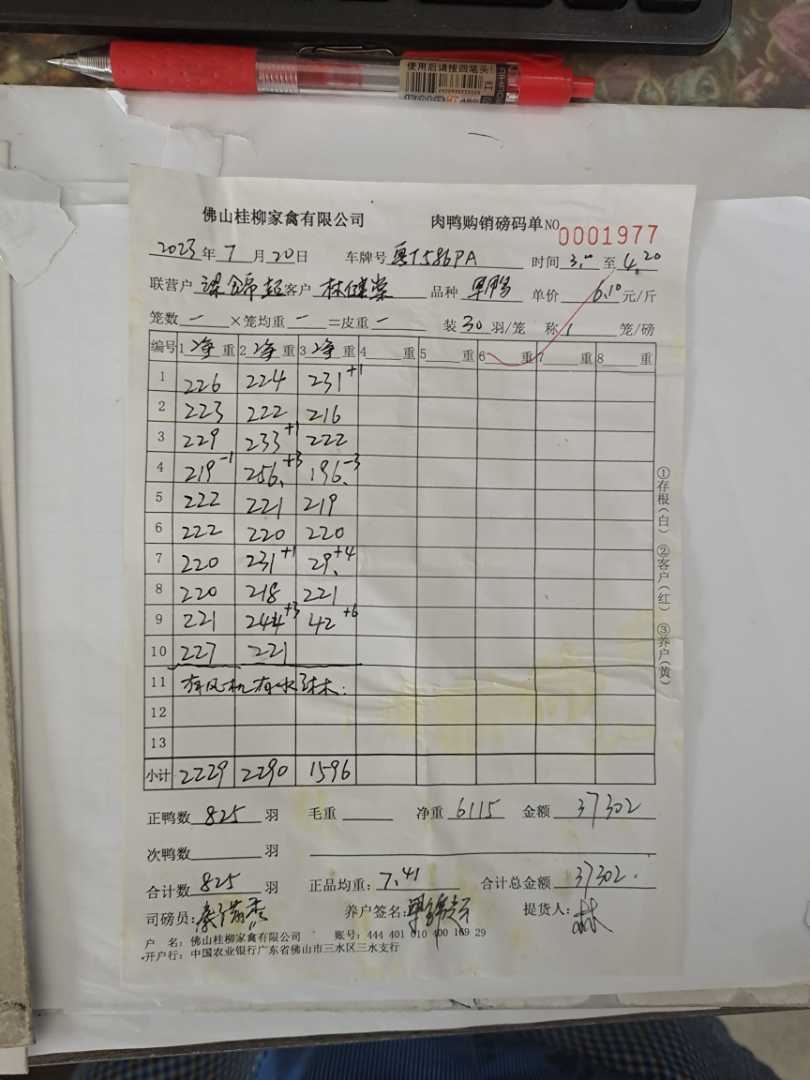 使用后请按回笔头
佛山桂柳家禽有限公司 肉鸭购销磅码单 NO 0001977
2023年7月20日 车牌号 粤T586PA 时间 3.00 至 4.20
联营户 客户 林健棠 品种 单价 6.10 元/斤
笼数 一 ×笼均重 一 =皮重 一 装 30 羽/笼 称 1 笼/磅
编号 1 净 重 2 净 重 3 净 重 4 重 5 重 6 重 7 重 8 重
1 226 224 231+1
2 223 222 216
3 229 233+1 222
4 219-1 256+3 196-3
5 222 221 219
6 222 220 220
7 220 231+1 29+4
8 220 218 221
9 221 244+3 42+6
10 227 221
11 有风机有水
12
13
小计 2229 2290 1596
正鸭数 825 羽 毛重 净重 6115 金额 37302
次鸭数 羽
合计数 825 羽 正品均重: 7.41 合计总金额 37302.
司磅员: 养户签名: 提货人: 林
户 名: 佛山桂柳家禽有限公司 账号: 444 401 010 400 169 29
开户行: 中国农业银行广东省佛山市三水区三水支行
①存根(白) ②客户(红) ③养户(黄)